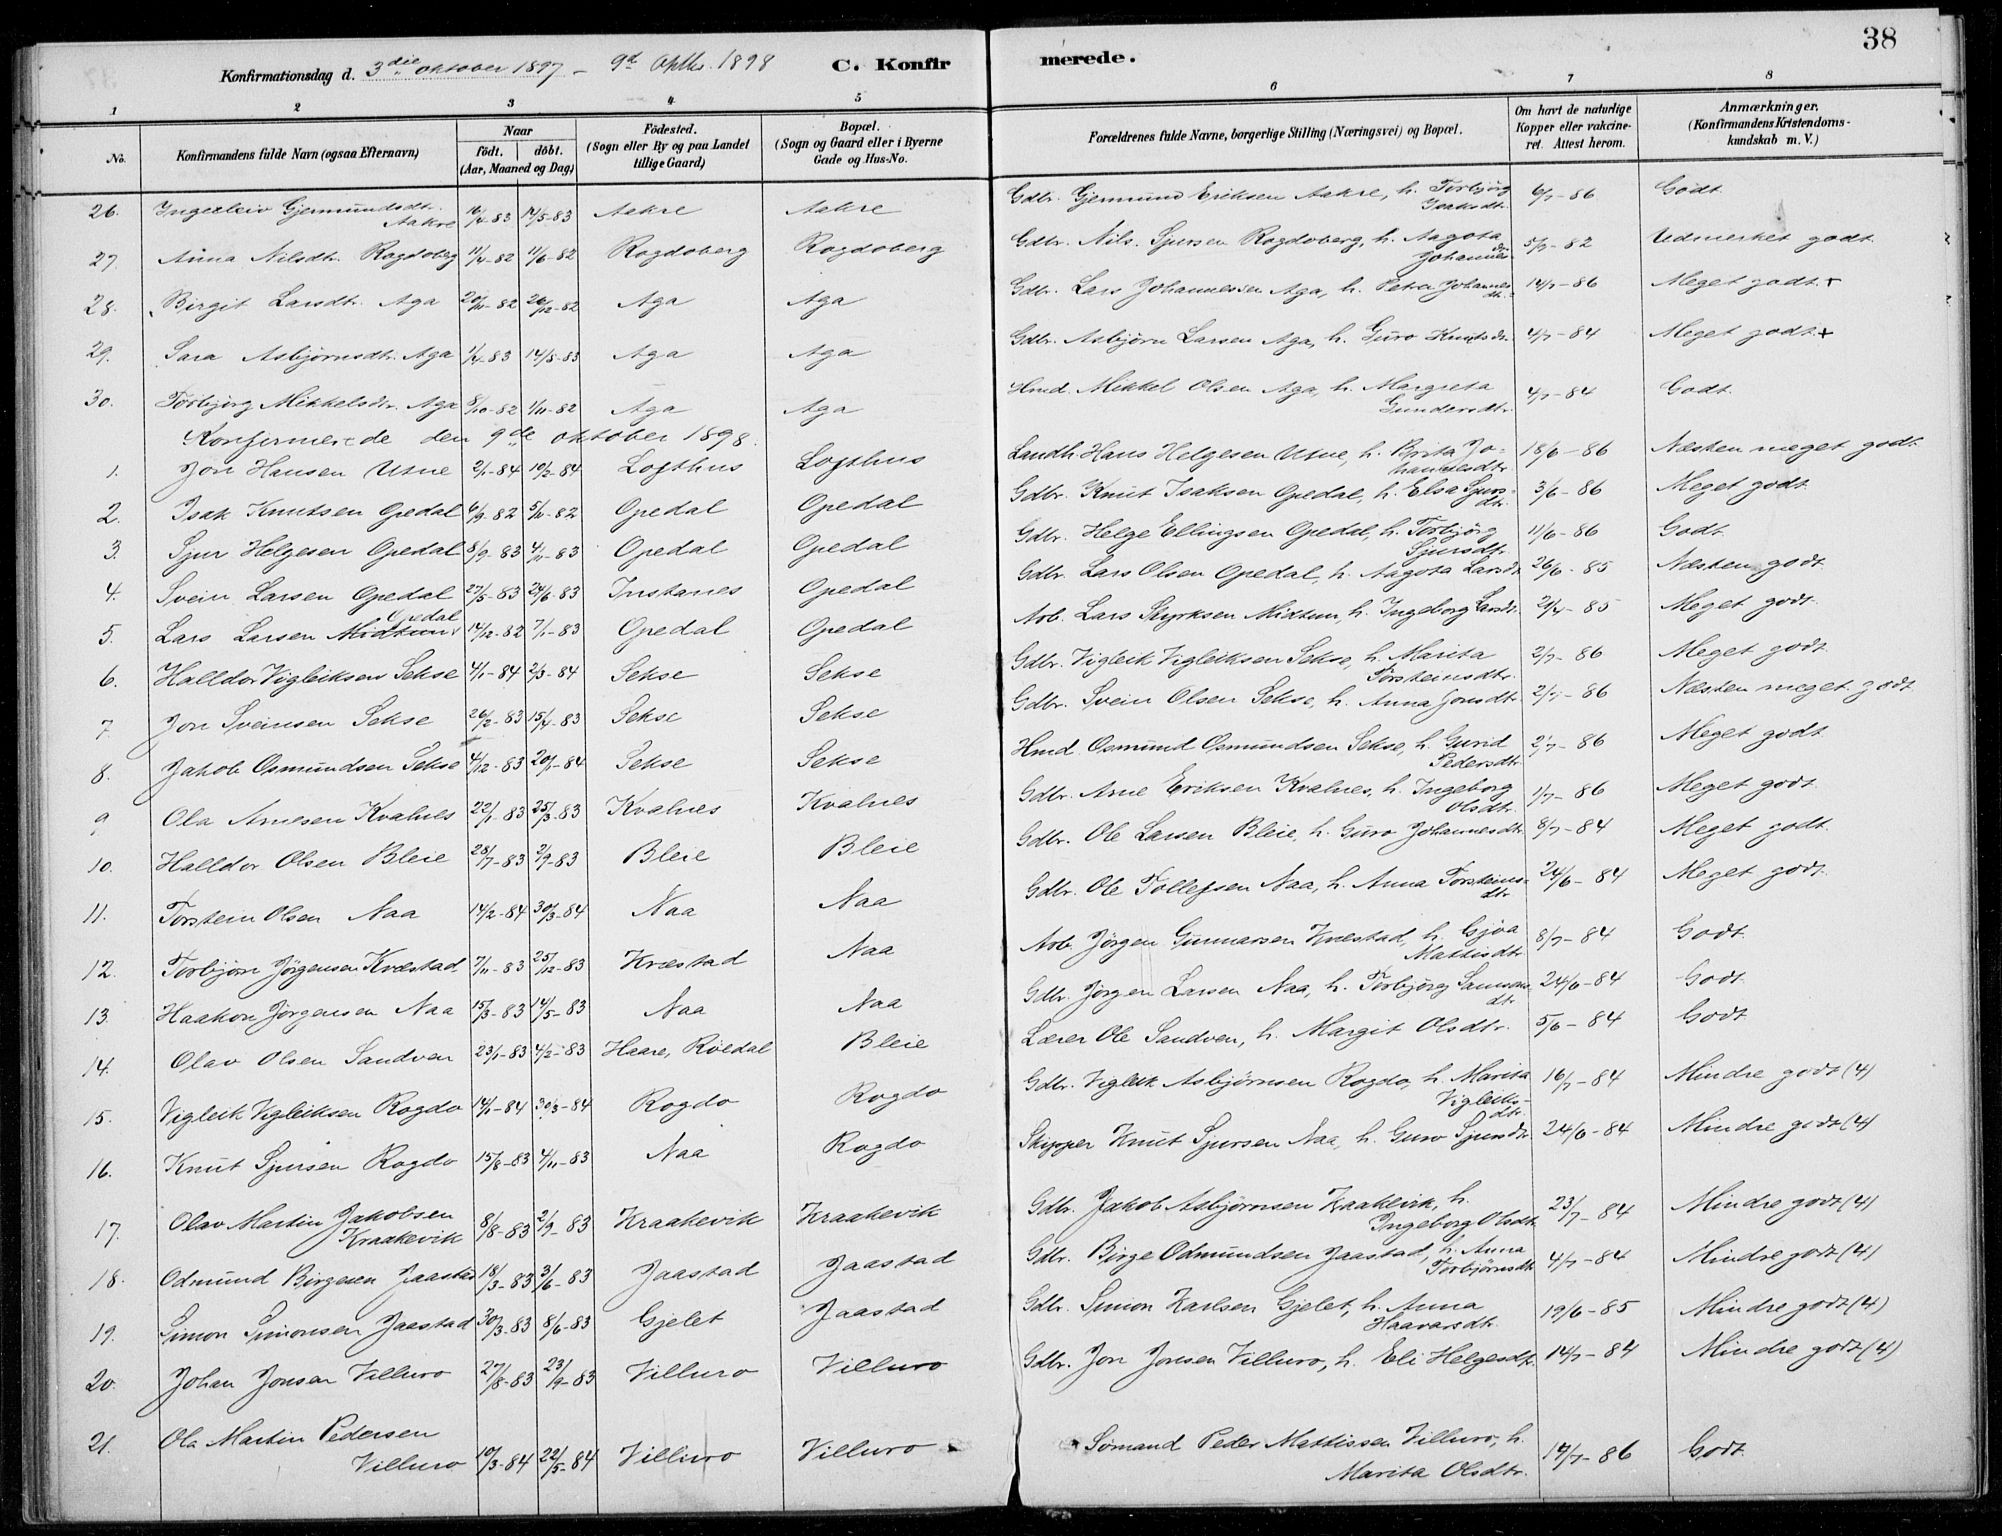 38
Konfirmationsdag d. 3die oktober 1897 - 9d Oktbr. 1898 C. Konfirmerede.
1 2 3 4 5 6 7 8
No. Konfirmandens fulde Navn (ogsaa Efternavn) Naar födt. döbt. (Aar, Maaned og Dag) Födested. (Sogn eller By og paa Landet tillige Gaard) Bopæl. (Sogn og Gaard eller i Byerne Gade og Hus-No. Forældrenes fulde Navne, borgerlige Stilling (Næringsvei) og Bopæl. Om havt de naturlige Kopper eller vakcineret. Attest herom. Anmærkninger. (Konfirmandens Kristendomskundskab m. V.)
26. Ingerleiv Gjermundsdtr. Aakre 16/4-83 14/5-83 Aakre Aakre Gdbr. Gjermund Eriksen Aakre, h. Torbjørg Isaksdtr. 6/7-86 Godt
27. Anna Nilsdtr. Rogdoberg 11/4-82 11/6-82 Rogdoberg Rogdoberg Gdbr. Nils Sjursen Rogdoberg, h. Aagota Johannesdr 5/7-82 Udmerket godt
28. Birgit Larsdtr. Aga 20/11-82 26/12-82 Aga Aga Gdbr. Lars Johannessen Aga, h. Petra Johannesdtr. 14/7-86 Meget godt. +
29. Sara Asbjørnsdtr. Aga 1/4-83 14/5-83 Aga Aga Gdbr. Asbjørn Larsen Aga, h. Guro Knutsdr. 4/7-84 Meget godt +
30. Torbjørg Mikkelsdtr. Aga 8/10-82 1/11-82 Aga Aga Hmd. Mikkel Olsen Aga, h. Margreta Gundersdtr. 4/7-84 Godt.
Konfirmerede den 9de oktober 1898.
1. Jon Hansen Utne 2/1-84 10/2-84 Lofthus Lofthus Landh. Hans Helgesen Utne, h. Brita Johannesdtr. 18/6-86 Næsten meget godt
2. Isak Knutsen Opedal 6/9-82 5/11-82 Opedal Opedal Gdbr. Knut Isaksen Opedal, h. Elsa Sjursdtr. 3/6-86 Meget godt
3. Sjur Helgesen Opedal 8/9-83 4/11-83 Opedal Opedal Gdbr. Helge Ellingsen Opedal, h. Torbjørg Sjursdtr. 11/6-86 Godt
4. Svein Larsen Opedal 27/5-83 24/6-83 Instanes Opedal Gdbr. Lars Olsen Opedal, h. Aagota Larsdt. 26/6-85 Næsten godt
5. Lars Larsen Midtun Opedal 14/12-82 7/1-83 Opedal Opedal Arb. Lars Styrksen Midtun, h. Ingeborg Larsdt. 2/4-85 Meget godt.
6. Halldor Vigleiksen Sekse 4/1-84 2/3-84 Sekse Sekse Gdbr. Vigleik Vigleiksen Sekse, h. Marita Torsteinsdtr. 2/7-86 Meget godt
7. Jon Sveinsen Sekse 26/2-83 15/4-83 Sekse Sekse Gdbr. Svein Olsen Sekse, h. Anna Jonsdtr 2/7-86 Næsten meget godt
8. Jakob Osmundsen Sekse 4/12-83 20/1-84 Sekse Sekse Hmd. Osmund Osmundsen Sekse, h. Gurid Pedersdtr 2/7-86 Meget godt
9 Ola Arnesen Kvalnes 22/1-83 25/3-83 Kvalnes Kvalnes Gdbr. Arne Eriksen Kvalnes, h. Ingeborg Olsdtr. 1/7-86 Meget godt
10. Halldor Olsen Bleie 28/7-83 2/9-83 Bleie Bleie Gdbr. Ole Larsen Bleie, h. Guro Johannesdtr 8/7-84 Meget godt.
11. Torstein Olsen Naa 14/2-84 30/3-84 Naa Naa Gdbr. Ole Tollefsen Naa, h. Anna Torsteinsdtr. 24/6-84 Meget godt.
12. Torbjørn Jørgensen Kvæstad 7/11-83 25/12-83 Kvæstad Naa Arb. Jørgen Gunnarsen Kvæstad, h. Gjøa Mattisdtr. 8/7-84 Godt
13. Haakon Jørgensen Naa 15/3-83 14/5-83 Naa Naa Gdbr. Jørgen Larsen Naa, h. Torbjørg Samsonsdtr. 24/6-84 Godt.
14. Olav Olsen Sandven 23/1-83 4/2-83 Haare, Röedal Bleie Lærer Ole Sandven, h. Margit Olsdtr. 5/6-84 Godt
15. Vigleik Vigleiksen Rogdo 14/1-84 30/3-84 Rogdo Rogdo Gdbr. Vigleik Asbjørnsen Rogdo, h. Marita Vigleiksdtr. 16/7-84 Mindre godt (4)
16. Knut Sjursen Rogdo 15/8-83 4/11-83 Naa Rogdo Skipper Knut Sjursen Naa, h. Guro Sjursdtr 24/6-84 Mindre godt (4)
17. Olav Martin Jakobsen Kraakevik 8/8-83 2/9-83 Kraakevik Kraakevik Gdbr. Jakob Asbjørnsen Kraakevik, h. Ingeborg Olsdt. 23/7-84 Mindre godt (4)
18. Odmund Birgesen Jaastad 18/3-83 3/6-83 Jaastad Jaastad Gdbr. Birge Odmundsen Jaastad, h. Anna Torbjørnsdt. 4/7-84 Mindre godt (4)
19. Simon Simonsen Jaastad 30/3-83 8/6-83 Gjelet Jaastad Gdbr. Simon Karlsen Gjelet, h. Anna Haavarsdtr. 19/6-85 Mindre godt (4)
20. Johan Jonsen Villuro 27/8-83 23/9-83 Villuro Villuro Gdbr. Jon Jonsen Villuro, h. Eli Helgesdt. 14/7-84 Mindre godt (4)
21. Ola Martin Pedersen Villuro 10/3-84 22/5-84 Villuro Villuro Sømand Peder Mattissen Villuro, h. Marita Olsdtr. 14/7-86 Godt